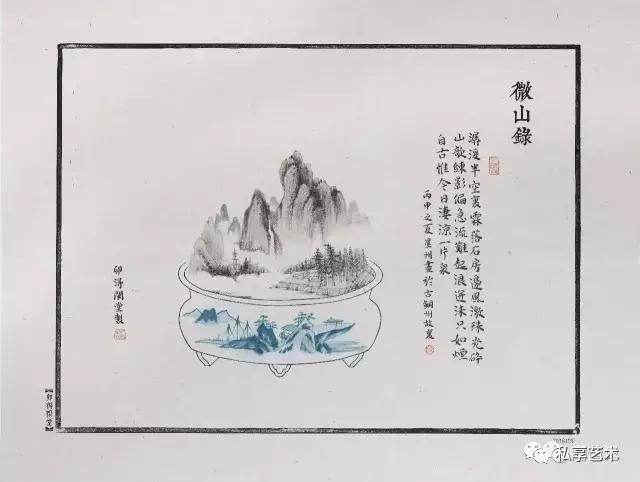 微山錄
潺湲半空裏霖落石房邊風激珠光碎
山欹練影偏急流難起浪迸沫只如煙
自古惟今日淒涼一片泉
丙申之夏星州畫於古州故裏
卯淂閒堂製
【卯得閒堂】
私享艺术